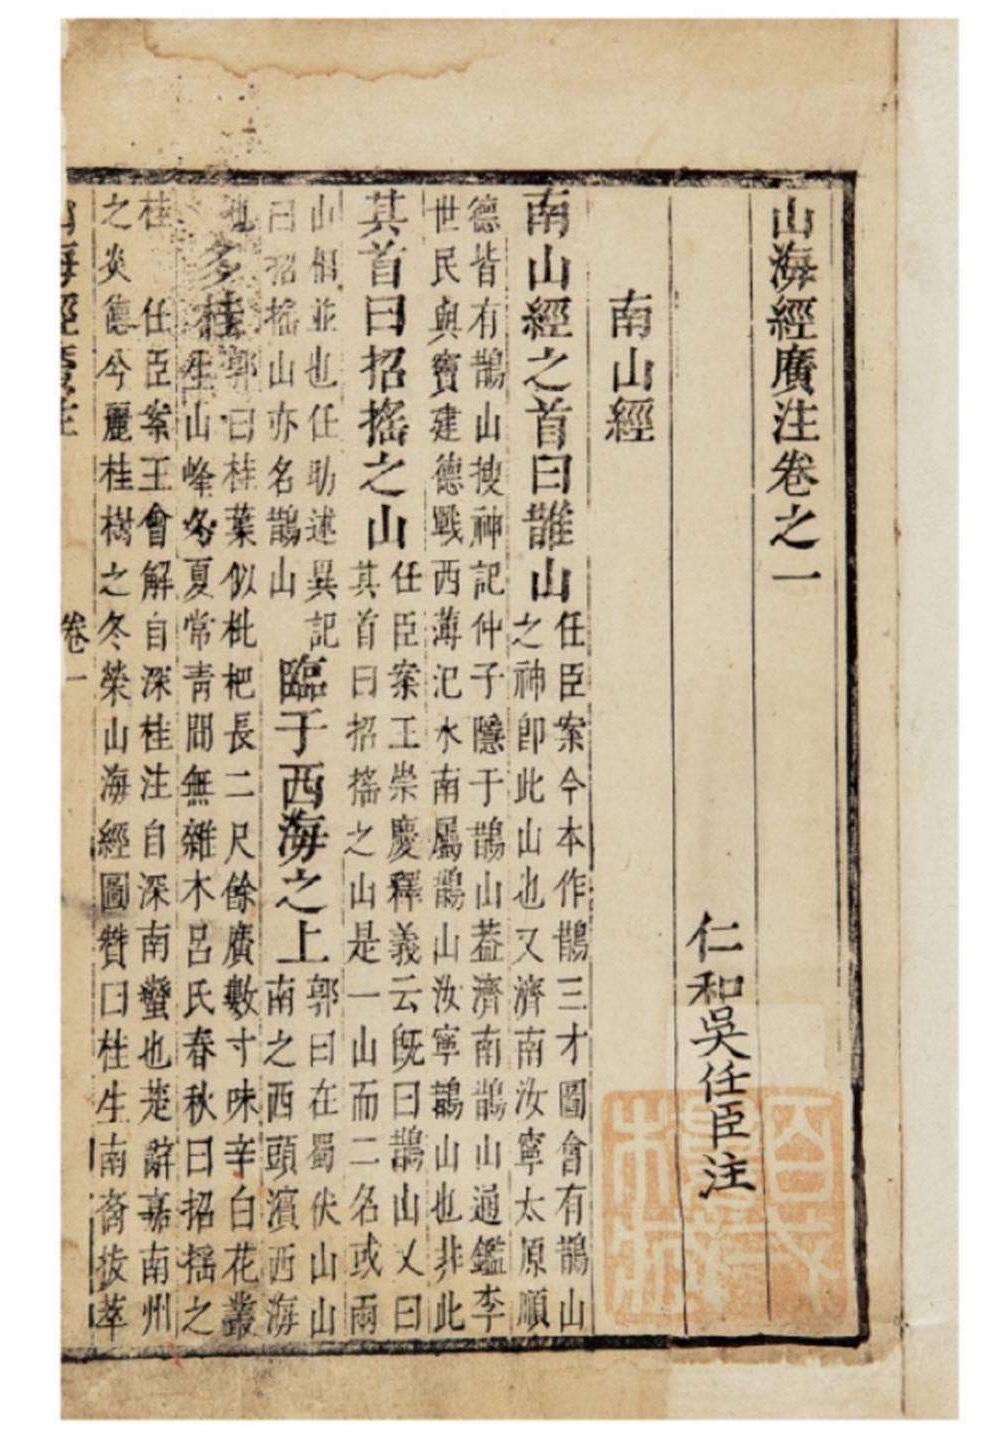 山海經廣注卷之一
仁和吳任臣注
南山經
南山經之首曰䧿山任臣案今本作鵲三才圖會有鵲山
之神卽此山也又濟南汝寧太原順
德皆有鵲山搜神記仲子隱于鵲山葢濟南鵲山通鑑李
世民與竇建德戰西薄汜水南屬鵲山汝寧鵲山也非此
其首曰招搖之山任臣案王崇慶釋義云旣曰鵲山又曰
其首曰招搖之山是一山而二名或兩
山相並也任昉述異記
曰招搖山亦名鵲山
臨于西海之上郭曰在蜀伏山山
南之西頭濱西海
也多桂郭曰桂葉似枇杷長二尺餘廣數寸味辛白花叢
生山峰冬夏常青間無雜木呂氏春秋曰招搖之
桂 任臣案王會解自深桂注自深南蠻也楚辭嘉南州
之炎德兮麗桂樹之冬榮山海經圖贊曰桂生南裔拔萃
山海經廣注 卷一